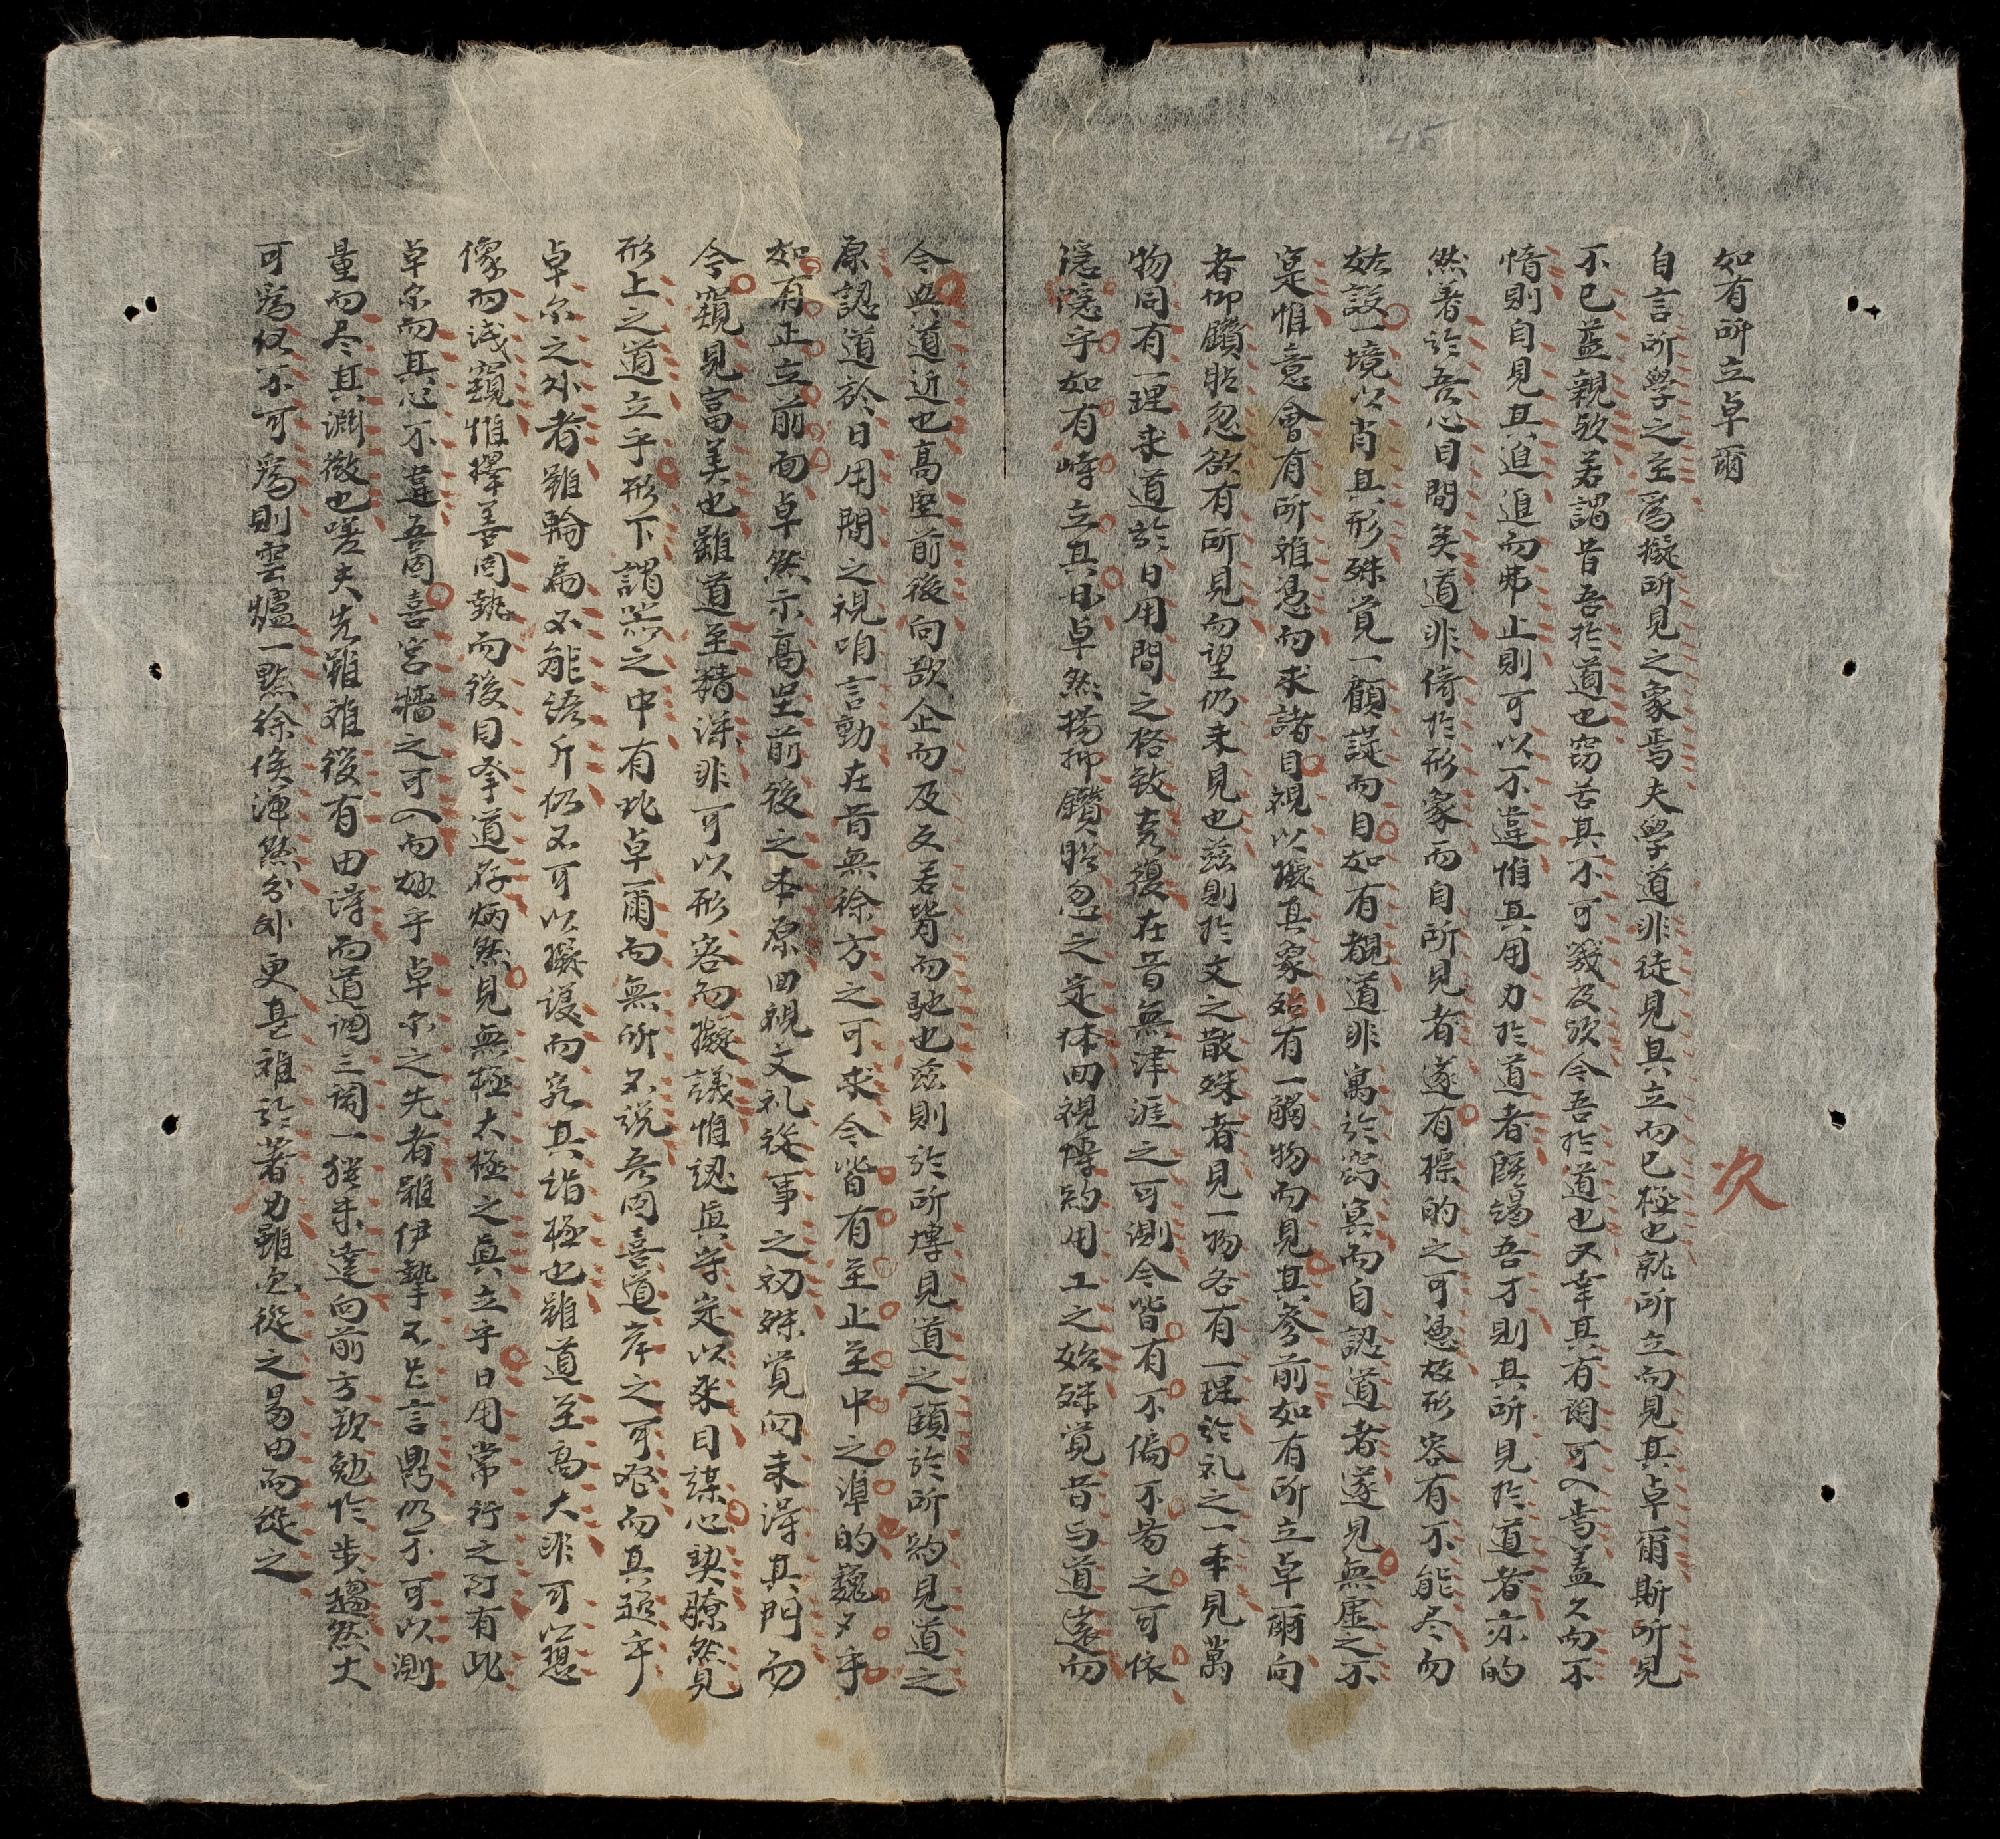 如有所立卓爾
自言所學之至爲擬所見之象焉夫學道非徒見其立而已極也就所立而見其卓爾斯所見
不已益親歟若謂昔吾於道也窃苦其不可幾及次今吾於道也又幸其有罔可入焉盖久而不
惰則自見其進進而弗止則可以不違惟其用力於道者既竭吾才則其所見於道者亦的
然著於吾心目間矣道非倚於形象而自所見者遂有標的之可憑故形容有不能尽而
姑設一境以肖其形殊覚一顧諟而目如有覩道非寓於窈冥而自認道者遂見無虚之不
寔惟意會有所難憑而求諸目視以擬其象殆有一觸物而見其參前如有所立卓爾向
者仰鑽瞻忽欲有所見而望仍未見也兹則於文之散殊者見一物各有一理於礼之一本見萬
物同有一理求道於日用間之格致克復在昔無津涯之可測今皆有不偏不易之可依
隱隱乎如有峙立其毌卓然揚仰鑽瞻忽之定体回視博約用工之始殊覚昔与道遠而
今與道近也高堅前後向欲企而及之若背而馳也兹則於所博見道之賾於所約見道之
原認道於日用間之視听言動在昔無徐方之可求今皆有至止至中之準的巍々乎
如有正立前面卓然示高堅前後之本原回視文礼從事之初殊覚向未得其門而
今窺見富美也雖道至精洋非可以形容而擬議惟認眞守定以來目謀心契瞭然見
形上之道立乎形下謂器之中有此卓爾而無所不説吾固喜道岸之可登而其跂乎
卓尔之外者雖輪扁不能語斤仍不可以擬議而究其詣極也雖道至高大非可以想
像而浅窺惟擇善固執而後目孚道存炳然見無極太極之眞立乎日用常行之行有此
卓尔而其心不違吾固喜宮牆之可入而極乎卓尔之先者雖伊摯不能言鼎仍不可以測
量而尽其淵微也嗟夫先難雖後有由得而道調三調一発未達向前方欲勉於步趨然大
可爲仍不可爲則雲爐一點徐俟渾然分外更甚難於著力雖欲從之曷由而從之
次
45